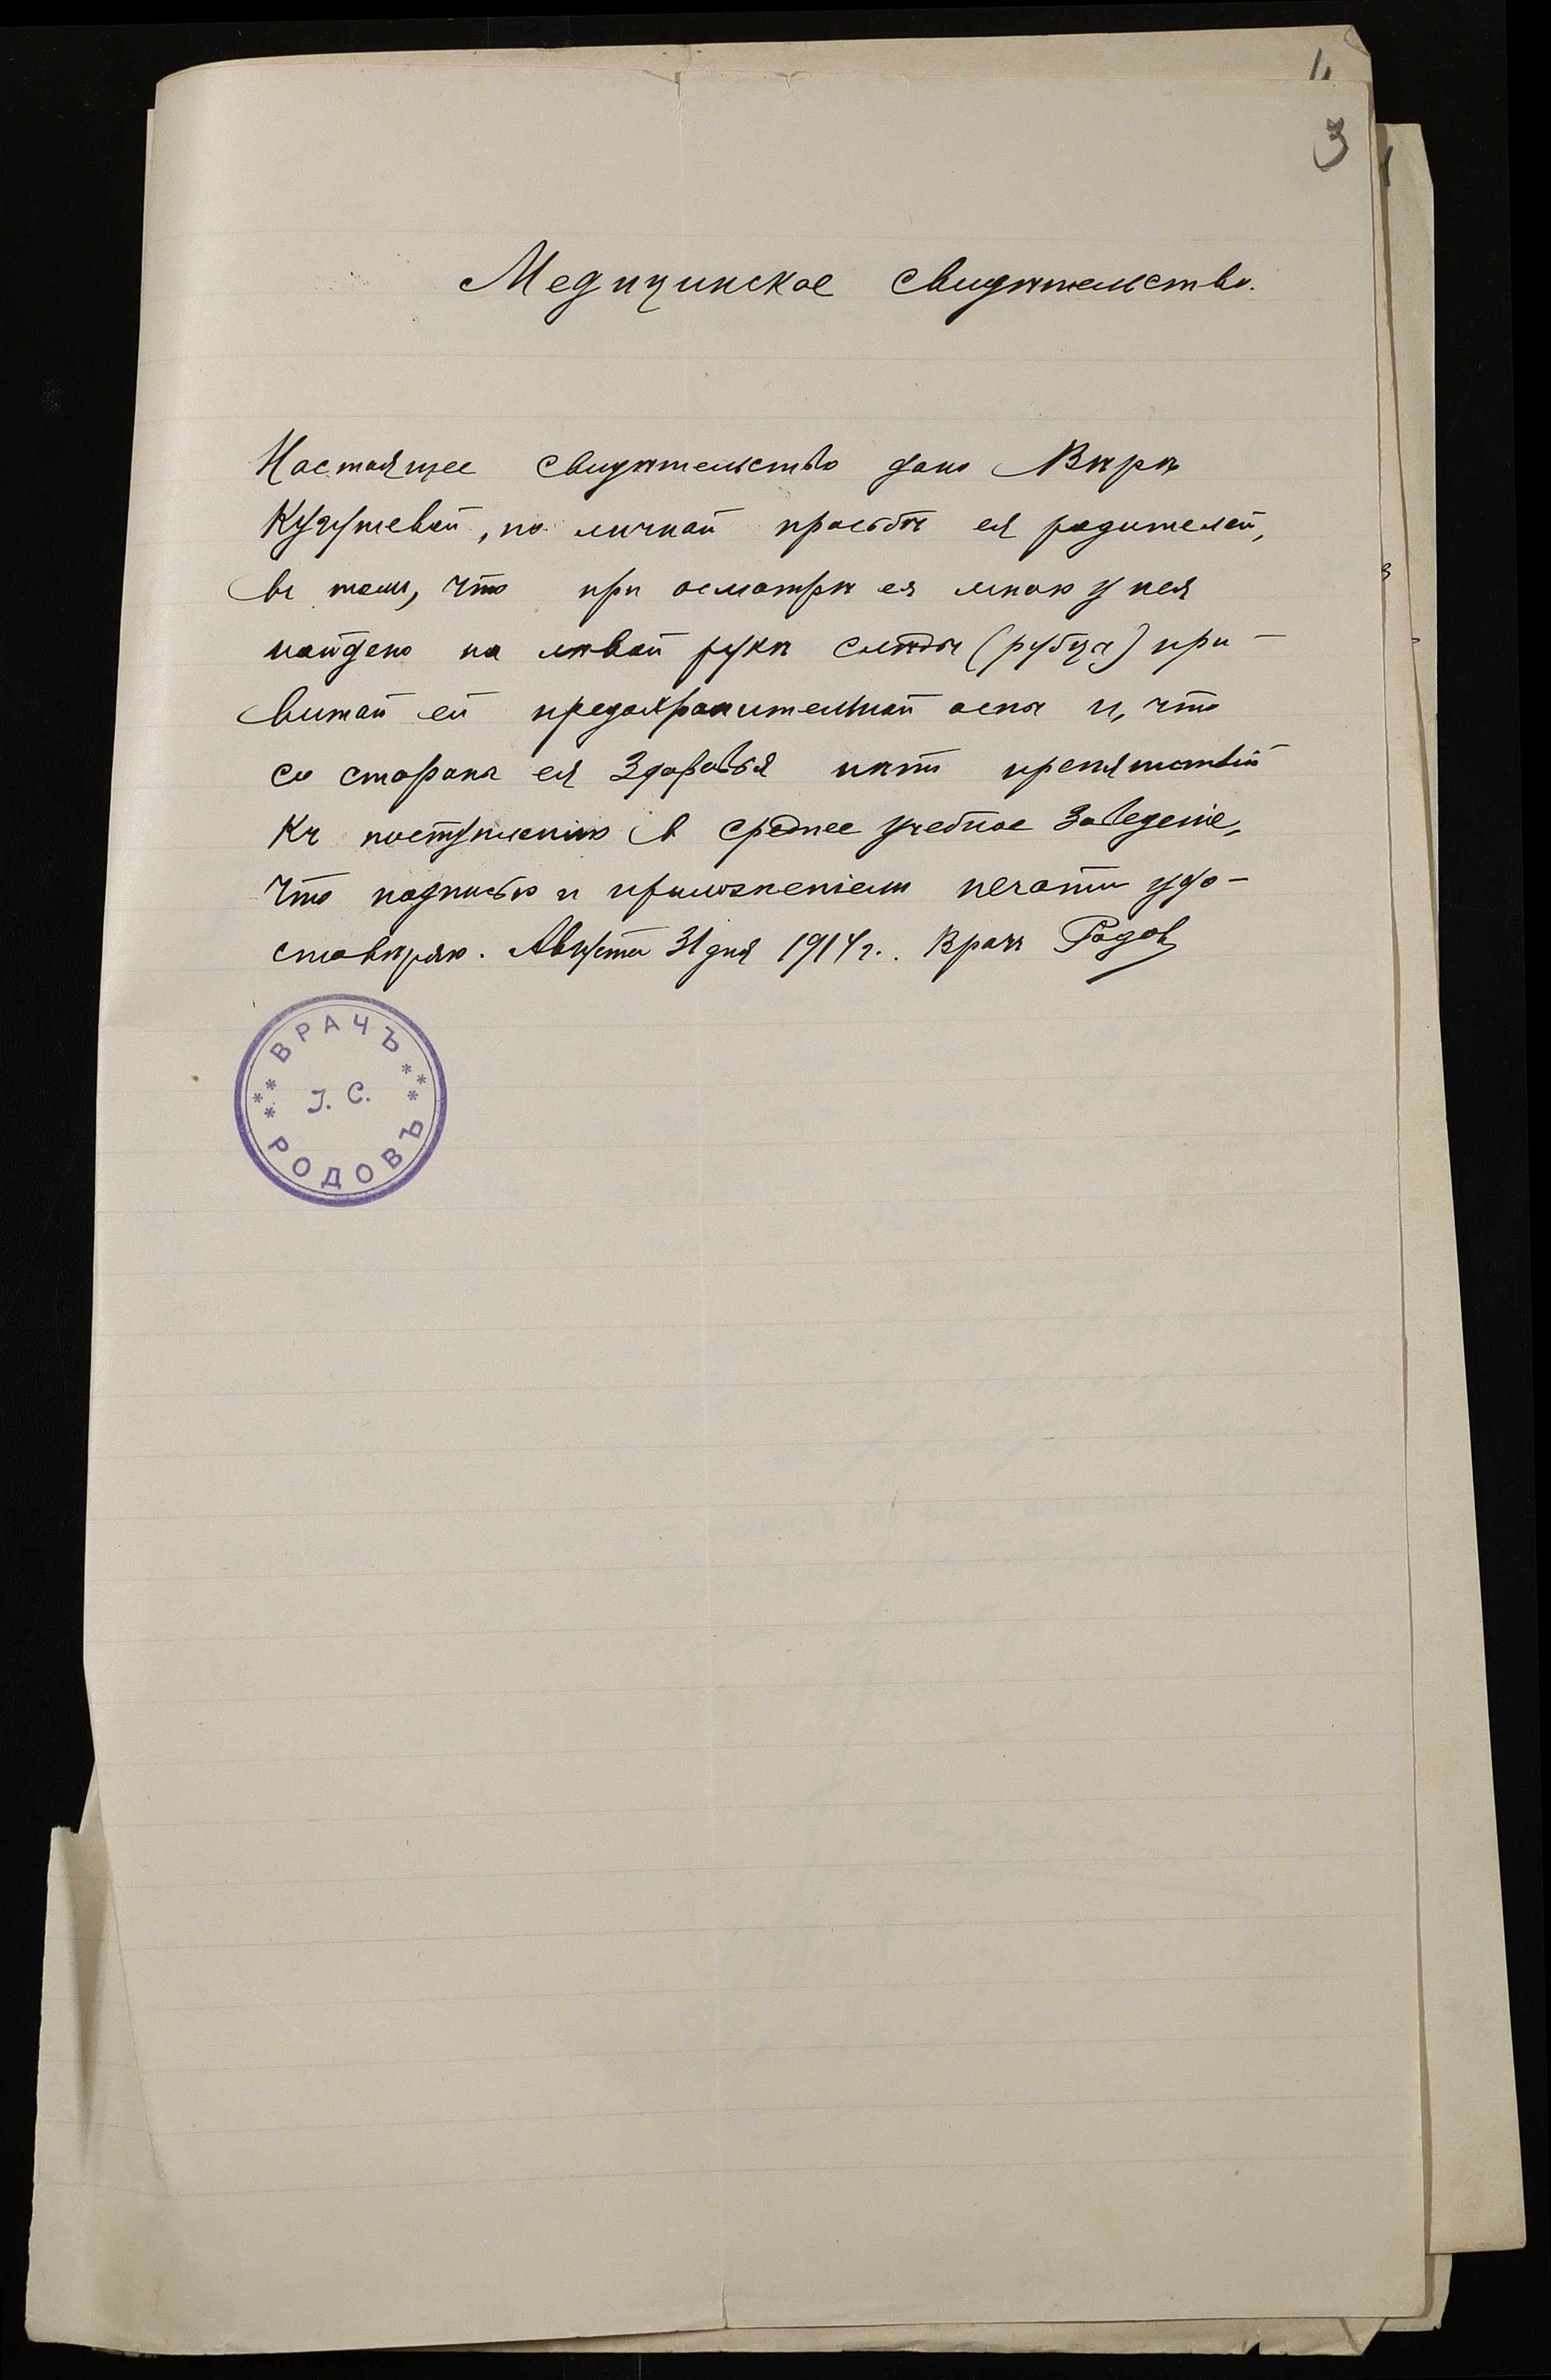 1,
3
Медицинское свидѣтельство.
Настоящее свидѣтельство дано Вѣрѣ
по личной просьбѣ ея родителей,
въ томъ, что при осмотрѣ ея мною у нея
найдено на лѣвой рукѣ слѣды (рубцы) при-
витой ей предохранительной оспы и, что
со стороны ея здоровья нѣтъ препятствій
къ поступленію в среднее учебное заведеніе,
что подписью и приложеніемъ печати удо-
стовѣряю. Августа 31 дня 1914 г.. Врачъ Родов
ВРАЧЪ
І. С.
РОДОВЪ